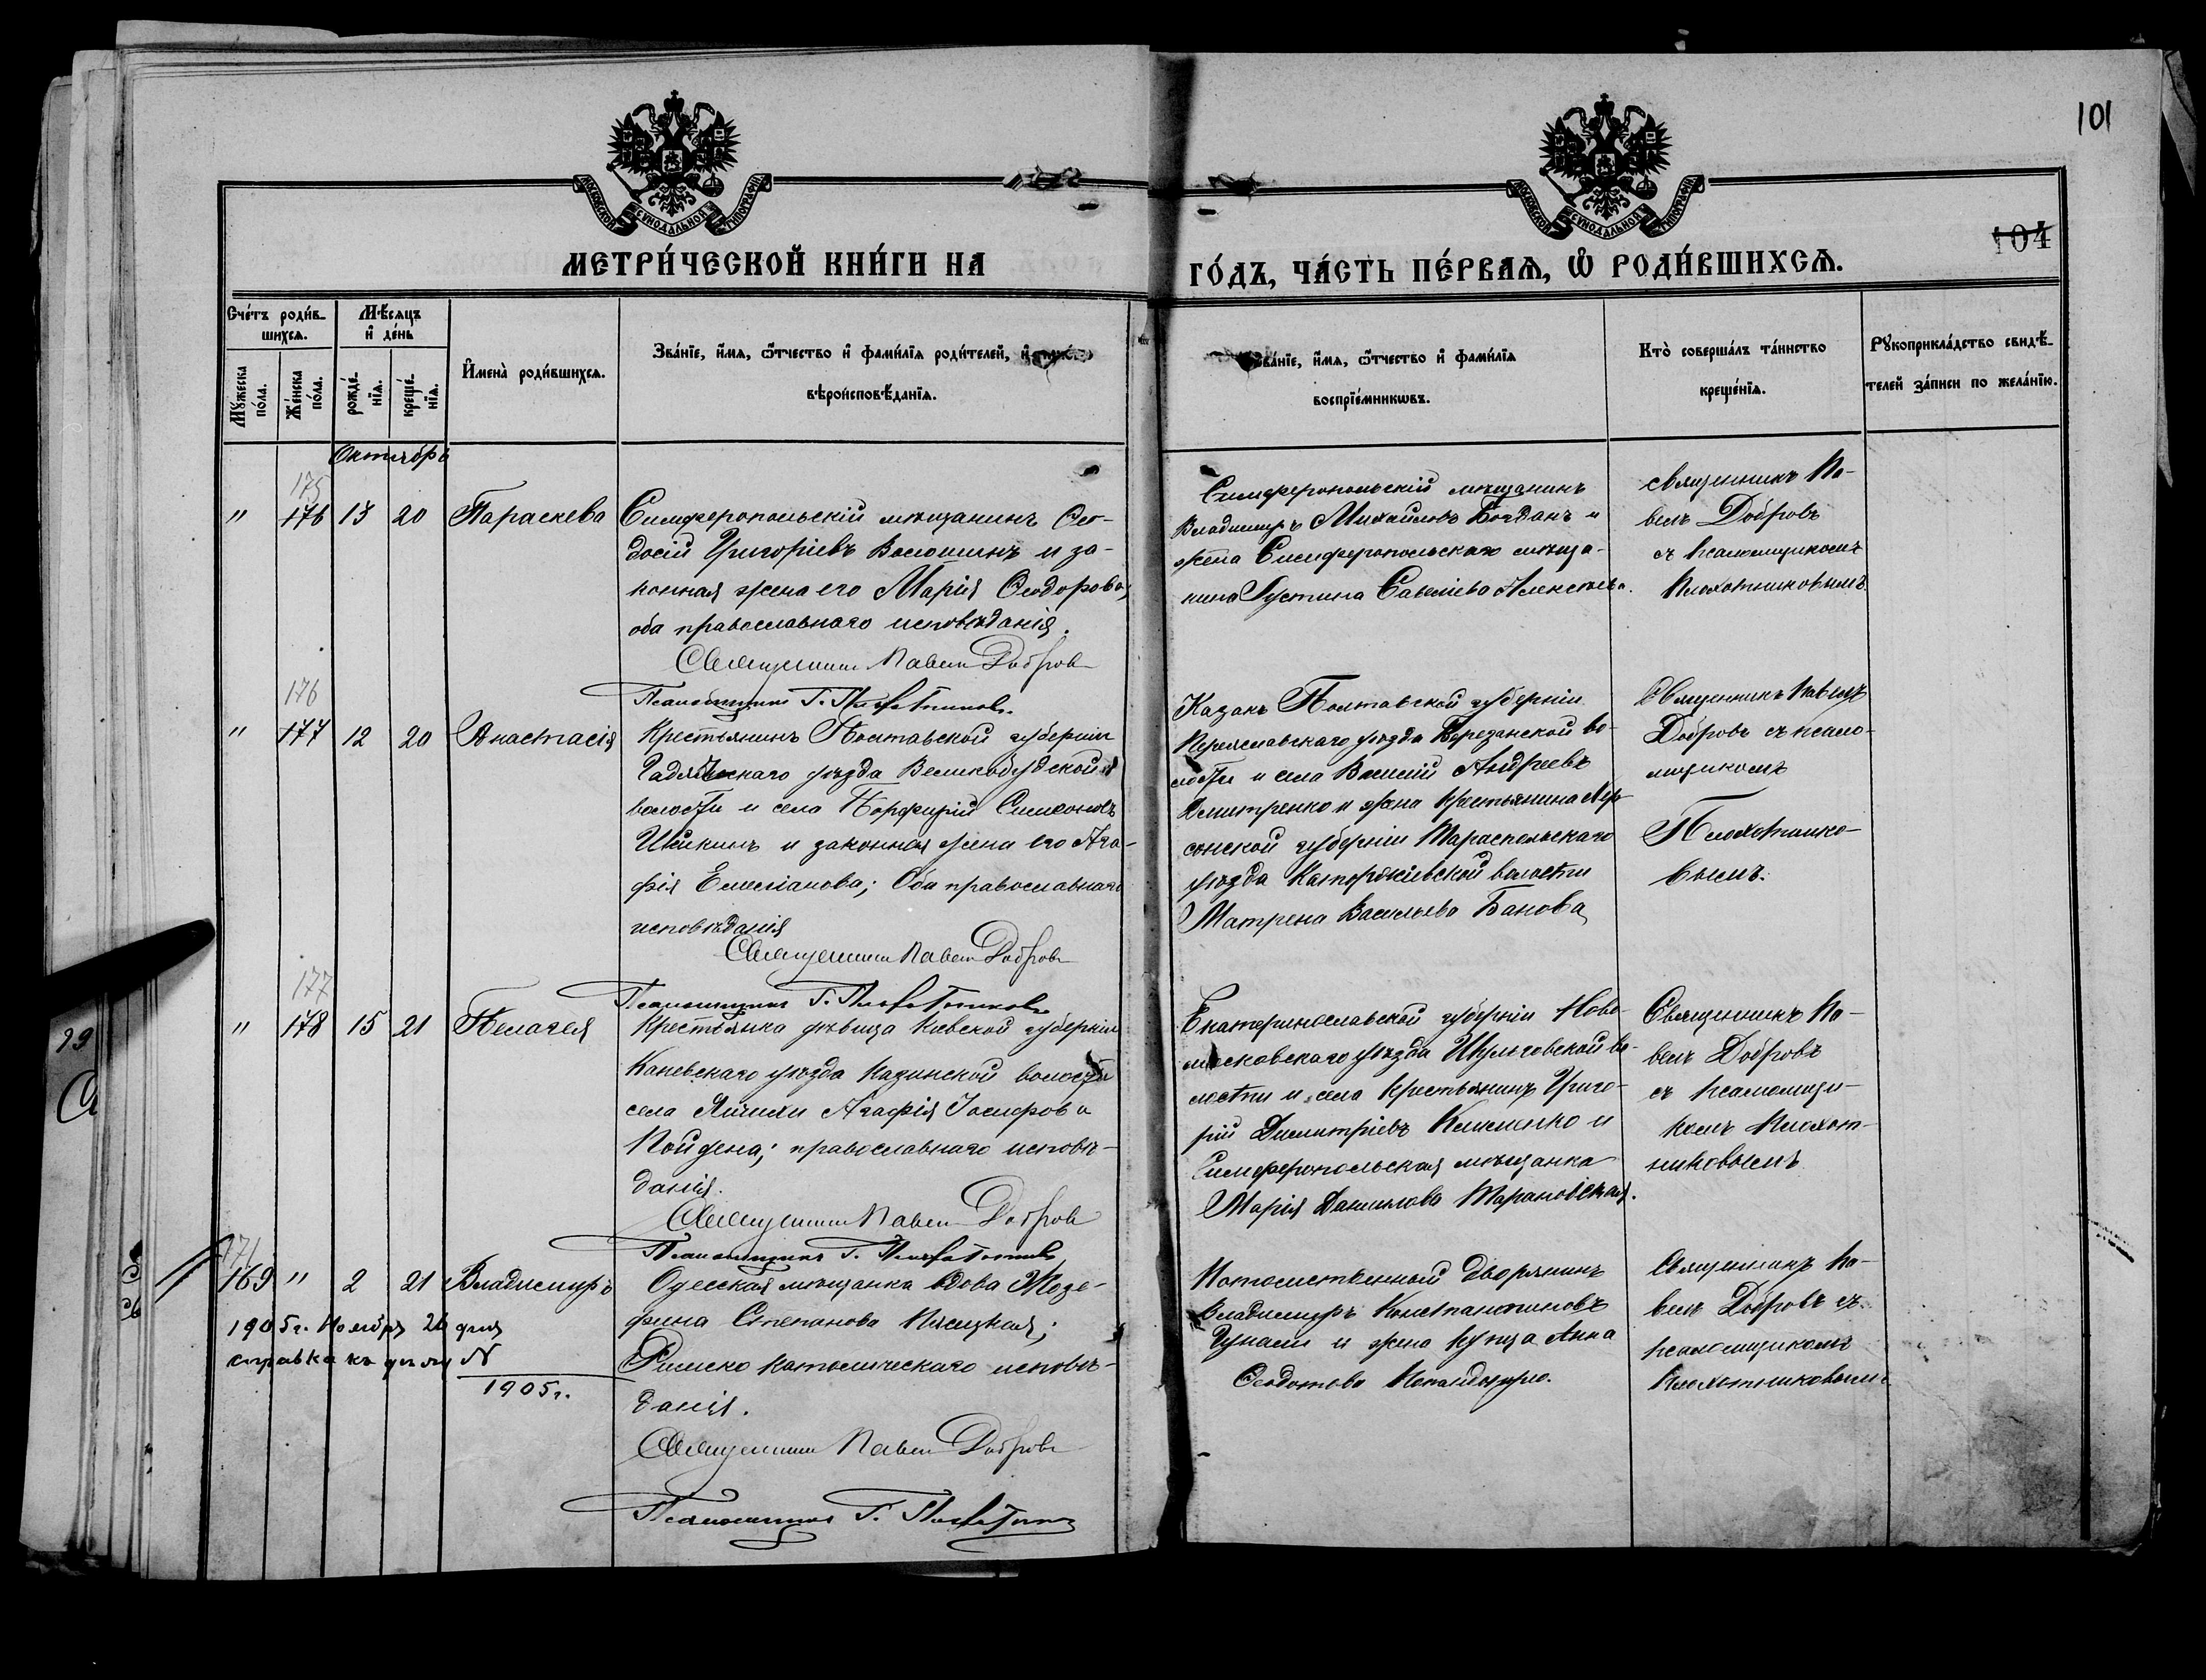 101
104
МОСКОВСКОЙ СѴНОДАЛЬНОЙ ТИПОГРАФІИ
МОСКОВСКОЙ СѴНОДАЛЬНОЙ ТИПОГРАФІИ
МЕТРИ́ЧЕСКОЙ КНИ́ГИ НА
ГО́ДЪ, ЧА́СТЬ ПЕ́РВАѦ, Ѽ РОДИ́ВШИХСѦ.
Сче́тъ роди́в-
шихсѧ.
Мѣ́сѧцъ
и҆ де́нь
Мꙋжеска по́ла.
Же́нска по́ла.
рожде́-нїѧ.
креще́-нїѧ.
И҆мена̀ роди́вшихсѧ.
Зва́нїе, и҆́мѧ, ѻ҆́тчество и҆ фами́лїѧ роди́телей, и҆
вѣроисповѣ́данїѧ.
Зва́нїе, и҆́мѧ, ѻ҆́тчество и҆ фами́лїѧ
воспрїе́мникѡвъ.
Кто̀ соверша́лъ та́инство
креще́нїѧ.
Рꙋкоприкла́дство свидѣ́-
телей за́писи по жела́нїю.
Октябрь
175
" 176 13 20 Параскева
Симферопольскій мѣщанинъ Ѳео-
досій Григоріевъ Волошинъ и за-
конная жена его Марія Ѳеодорова,
оба православнаго исповѣданія.
Священникъ Павелъ Добровъ
Псаломщикъ Г. Плохотниковъ
Симферопольскій мѣщанинъ
Владимиръ Михайловъ Богданъ и
жена Симферопольскаго мѣща-
нина Іустина Савеліева Алексѣева.
священникъ Па-
велъ Добровъ
съ псаломщикомъ
Плохотниковымъ
176
" 177 12 20 Анастасія
Крестьянинъ Полтавской губерніи
Гадячскаго уѣзда Великобудской
волости и села Порфирій Симеоновъ
Шикинъ и законная жена его Ага-
фія Емеліанова; Оба православнаго
исповѣданія
Священникъ Павелъ Добровъ
Псаломщикъ Г. Плохотниковъ
Казакъ Полтавской губерніи
Переяславскаго уѣзда Березанской во-
лости и села Василій Андреевъ
Дмитренко и жена крестьянина Хер-
сонской губерніи Тираспольскаго
уѣзда волости
Матрена Васильева Банова
Священникъ Павелъ
Добровъ съ псало-
мщикомъ
Плохотнико-
вымъ.
177
" 178 15 21 Пелагея
Крестьянка дѣвица Кіевской губерніи
Каневскаго уѣзда Казинской волости
села Агафія Іосифова
православнаго исповѣ-
данія.
Священникъ Павелъ Добровъ
Псаломщикъ Г. Плохотниковъ
Екатеринославской губерніи Ново-
московскаго уѣзда Шульговской во-
лости и села крестьянинъ Григо-
рій Димитріевъ Клименко и
Симферопольская мѣщанка
Марія Данилова Тарановская.
Священникъ Па-
велъ Добровъ
съ псаломщи-
комъ Плохот-
никовымъ
171
169 " 2 21 Владимиръ
Одесская мѣщанка вдова Жозе-
фина Степанова
Римско католическаго исповѣ-
данія.
Священникъ Павелъ Добровъ
Псаломщикъ Г. Плохотниковъ
1905 г. Ноября 26 дня
справка къ дѣлу N
1905 г.
Потомственный дворянинъ
Владимиръ Константиновъ
и жена купца Анна
Ѳеодотова
Священникъ Па-
велъ Добровъ съ
псаломщикомъ
Плохотниковымъ
99